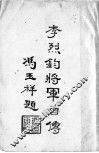 李烈鈞將軍自傳
馮玉祥題